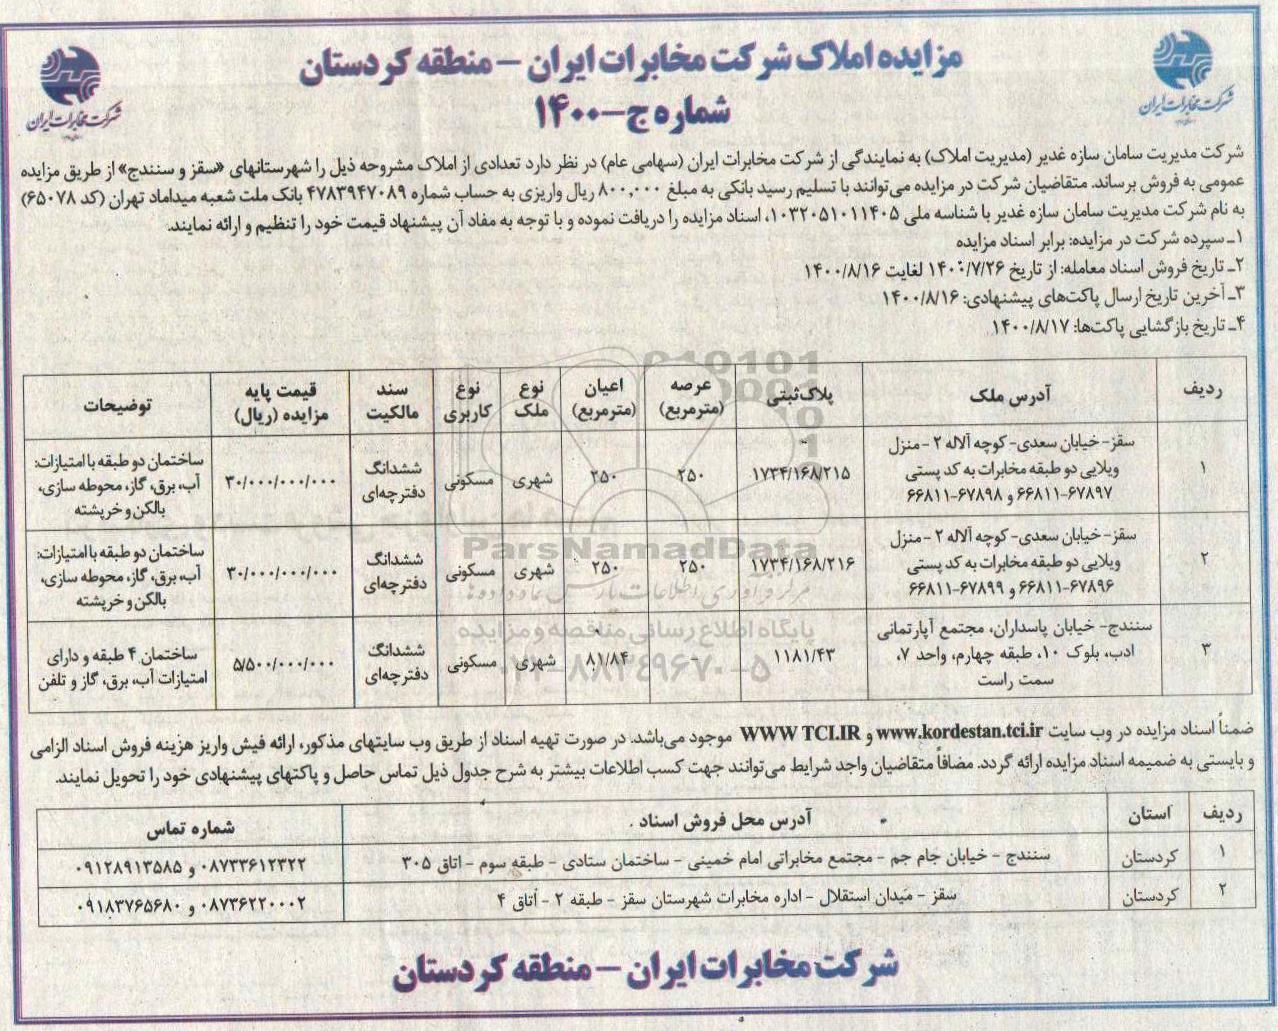 مزایده املاک شرکت مخابرات ایران – منطقه کردستان
شماره ج–۱۴۰۰
شرکت مخابرات ایران
شرکت مخابرات ایران
شرکت مدیریت سامان سازه غدیر (مدیریت املاک) به نمایندگی از شرکت مخابرات ایران (سهامی عام) در نظر دارد تعدادی از املاک مشروحه ذیل را شهرستانهای «سقز و سنندج» از طریق مزایده
عمومی به فروش برساند. متقاضیان شرکت در مزایده می‌توانند با تسلیم رسید بانکی به مبلغ ۸۰۰,۰۰۰ ریال واریزی به حساب شماره ۴۷۸۳۹۴۷۰۸۹ بانک ملت شعبه میداماد تهران (کد ۶۵۰۷۸)
به نام شرکت مدیریت سامان سازه غدیر با شناسه ملی ۱۰۳۲۰۵۱۰۱۱۴۰۵، اسناد مزایده را دریافت نموده و با توجه به مفاد آن پیشنهاد قیمت خود را تنظیم و ارائه نمایند.
۱ـ سپرده شرکت در مزایده: برابر اسناد مزایده
۲ـ تاریخ فروش اسناد معامله: از تاریخ ۱۴۰۰/۷/۲۶ لغایت ۱۴۰۰/۸/۱۶
۳ـ آخرین تاریخ ارسال پاکت‌های پیشنهادی: ۱۴۰۰/۸/۱۶
۴ـ تاریخ بازگشایی پاکت‌ها: ۱۴۰۰/۸/۱۷
ردیف | آدرس ملک | پلاک ثبتی | عرصه (مترمربع) | اعیان (مترمربع) | نوع ملک | نوع کاربری | سند مالکیت | قیمت پایه مزایده (ریال) | توضیحات
۱ | سقز- خیابان سعدی- کوچه آلاله ۲ -منزل ویلایی دو طبقه مخابرات به کد پستی ۶۶۸۱۱-۶۷۸۹۷ و ۶۶۸۱۱-۶۷۸۹۸ | ۱۷۳۴/۱۶۸/۲۱۵ | ۲۵۰ | ۲۵۰ | شهری | مسکونی | ششدانگ دفترچه‌ای | ۳۰/۰۰۰/۰۰۰/۰۰۰ | ساختمان دو طبقه با امتیازات: آب، برق، گاز، محوطه سازی، بالکن و خرپشته
۲ | سقز- خیابان سعدی- کوچه آلاله ۲ -منزل ویلایی دو طبقه مخابرات به کد پستی ۶۶۸۱۱-۶۷۸۹۶ و ۶۶۸۱۱-۶۷۸۹۹ | ۱۷۳۴/۱۶۸/۲۱۶ | ۲۵۰ | ۲۵۰ | شهری | مسکونی | ششدانگ دفترچه‌ای | ۳۰/۰۰۰/۰۰۰/۰۰۰ | ساختمان دو طبقه با امتیازات: آب، برق، گاز، محوطه سازی، بالکن و خرپشته
۳ | سنندج- خیابان پاسداران، مجتمع آپارتمانی ادب، بلوک ۱۰، طبقه چهارم، واحد ۷، سمت راست | ۱۱۸۱/۴۳ | - | ۸۱/۸۴ | شهری | مسکونی | ششدانگ دفترچه‌ای | ۵/۵۰۰/۰۰۰/۰۰۰ | ساختمان ۴ طبقه و دارای امتیازات آب، برق، گاز و تلفن
ParsNamadData
پایگاه اطلاع رسانی مناقصه و مزایده
۰۲۱-۸۸۳۴۹۶۷۰-۵
ضمناً اسناد مزایده در وب سایت www.kordestan.tci.ir و WWW TCI.IR موجود می‌باشد. در صورت تهیه اسناد از طریق وب سایتهای مذکور، ارائه فیش واریز هزینه فروش اسناد الزامی
و بایستی به ضمیمه اسناد مزایده ارائه گردد. مضافاً متقاضیان واجد شرایط می‌توانند جهت کسب اطلاعات بیشتر به شرح جدول ذیل تماس حاصل و پاکتهای پیشنهادی خود را تحویل نمایند.
ردیف | استان | آدرس محل فروش اسناد | شماره تماس
۱ | کردستان | سنندج – خیابان جام جم – مجتمع مخابراتی امام خمینی – ساختمان ستادی – طبقه سوم – اتاق ۳۰۵ | ۰۸۷۳۳۶۱۲۳۲۲ و ۰۹۱۲۸۹۱۳۵۸۵
۲ | کردستان | سقز – میدان استقلال – اداره مخابرات شهرستان سقز – طبقه ۲ – اتاق ۴ | ۰۸۷۳۶۲۲۰۰۰۲ و ۰۹۱۸۳۷۶۵۶۸۰
شرکت مخابرات ایران – منطقه کردستان